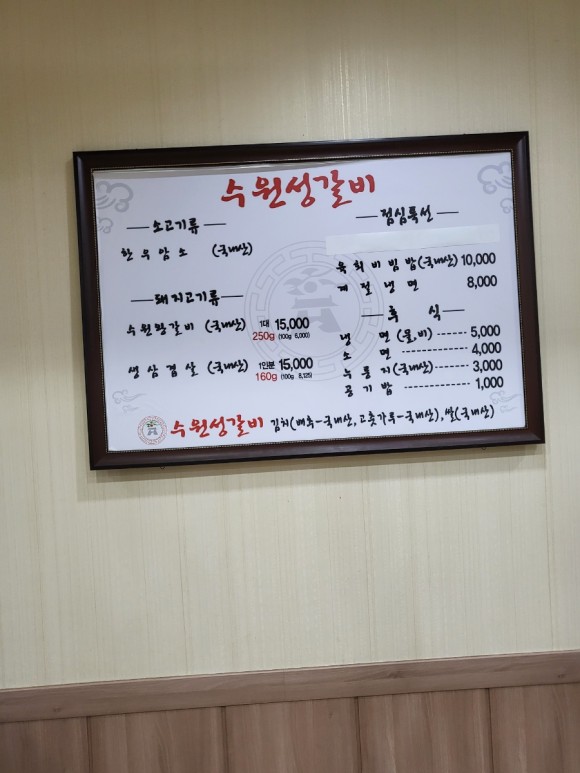 수원성갈비
소고기류
한우암소 (국내산)
돼지고기류
수원왕갈비 (국내산) 1대 15,000
250g (100g 6,000)
생삼겹살 (국내산) 1인분 15,000
160g (100g 8,125)
점심특선
육회비빔밥(국내산) 10,000
계절냉면 8,000
후식
냉면(물,비) 5,000
소면 4,000
누룽지(국내산) 3,000
공기밥 1,000
수원성갈비 김치(배추-국내산,고춧가루-국내산),쌀(국내산)